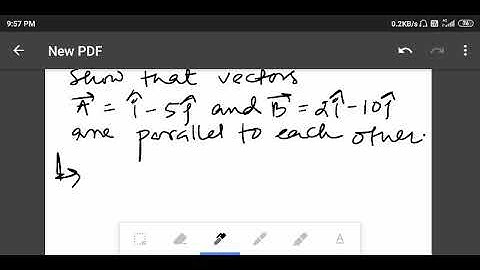 9:57 PM
0.2KB/s
26
New PDF
Show that vectors
A⃗ = î - 5ĵ and B⃗ = 2î - 10ĵ
are parallel to each other.
A